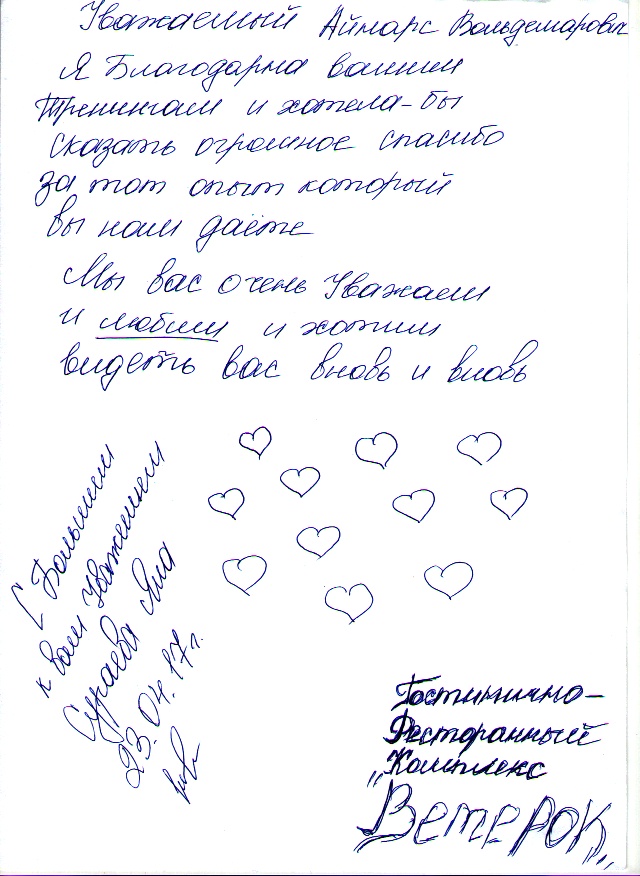 Уважаемый Аймарс Вольдемарович
Я Благодарна вашим
Тренингам и хотела-бы
сказать огромное спасибо
за тот опыт который
вы нам даёте
Мы вас очень Уважаем
и любим и хотим
видеть вас вновь и вновь
С Большим
к вам Уважением
Сураева Яна
23.04.17г.
Гостинично-
Ресторанный
"Комплекс
"Ветерок"